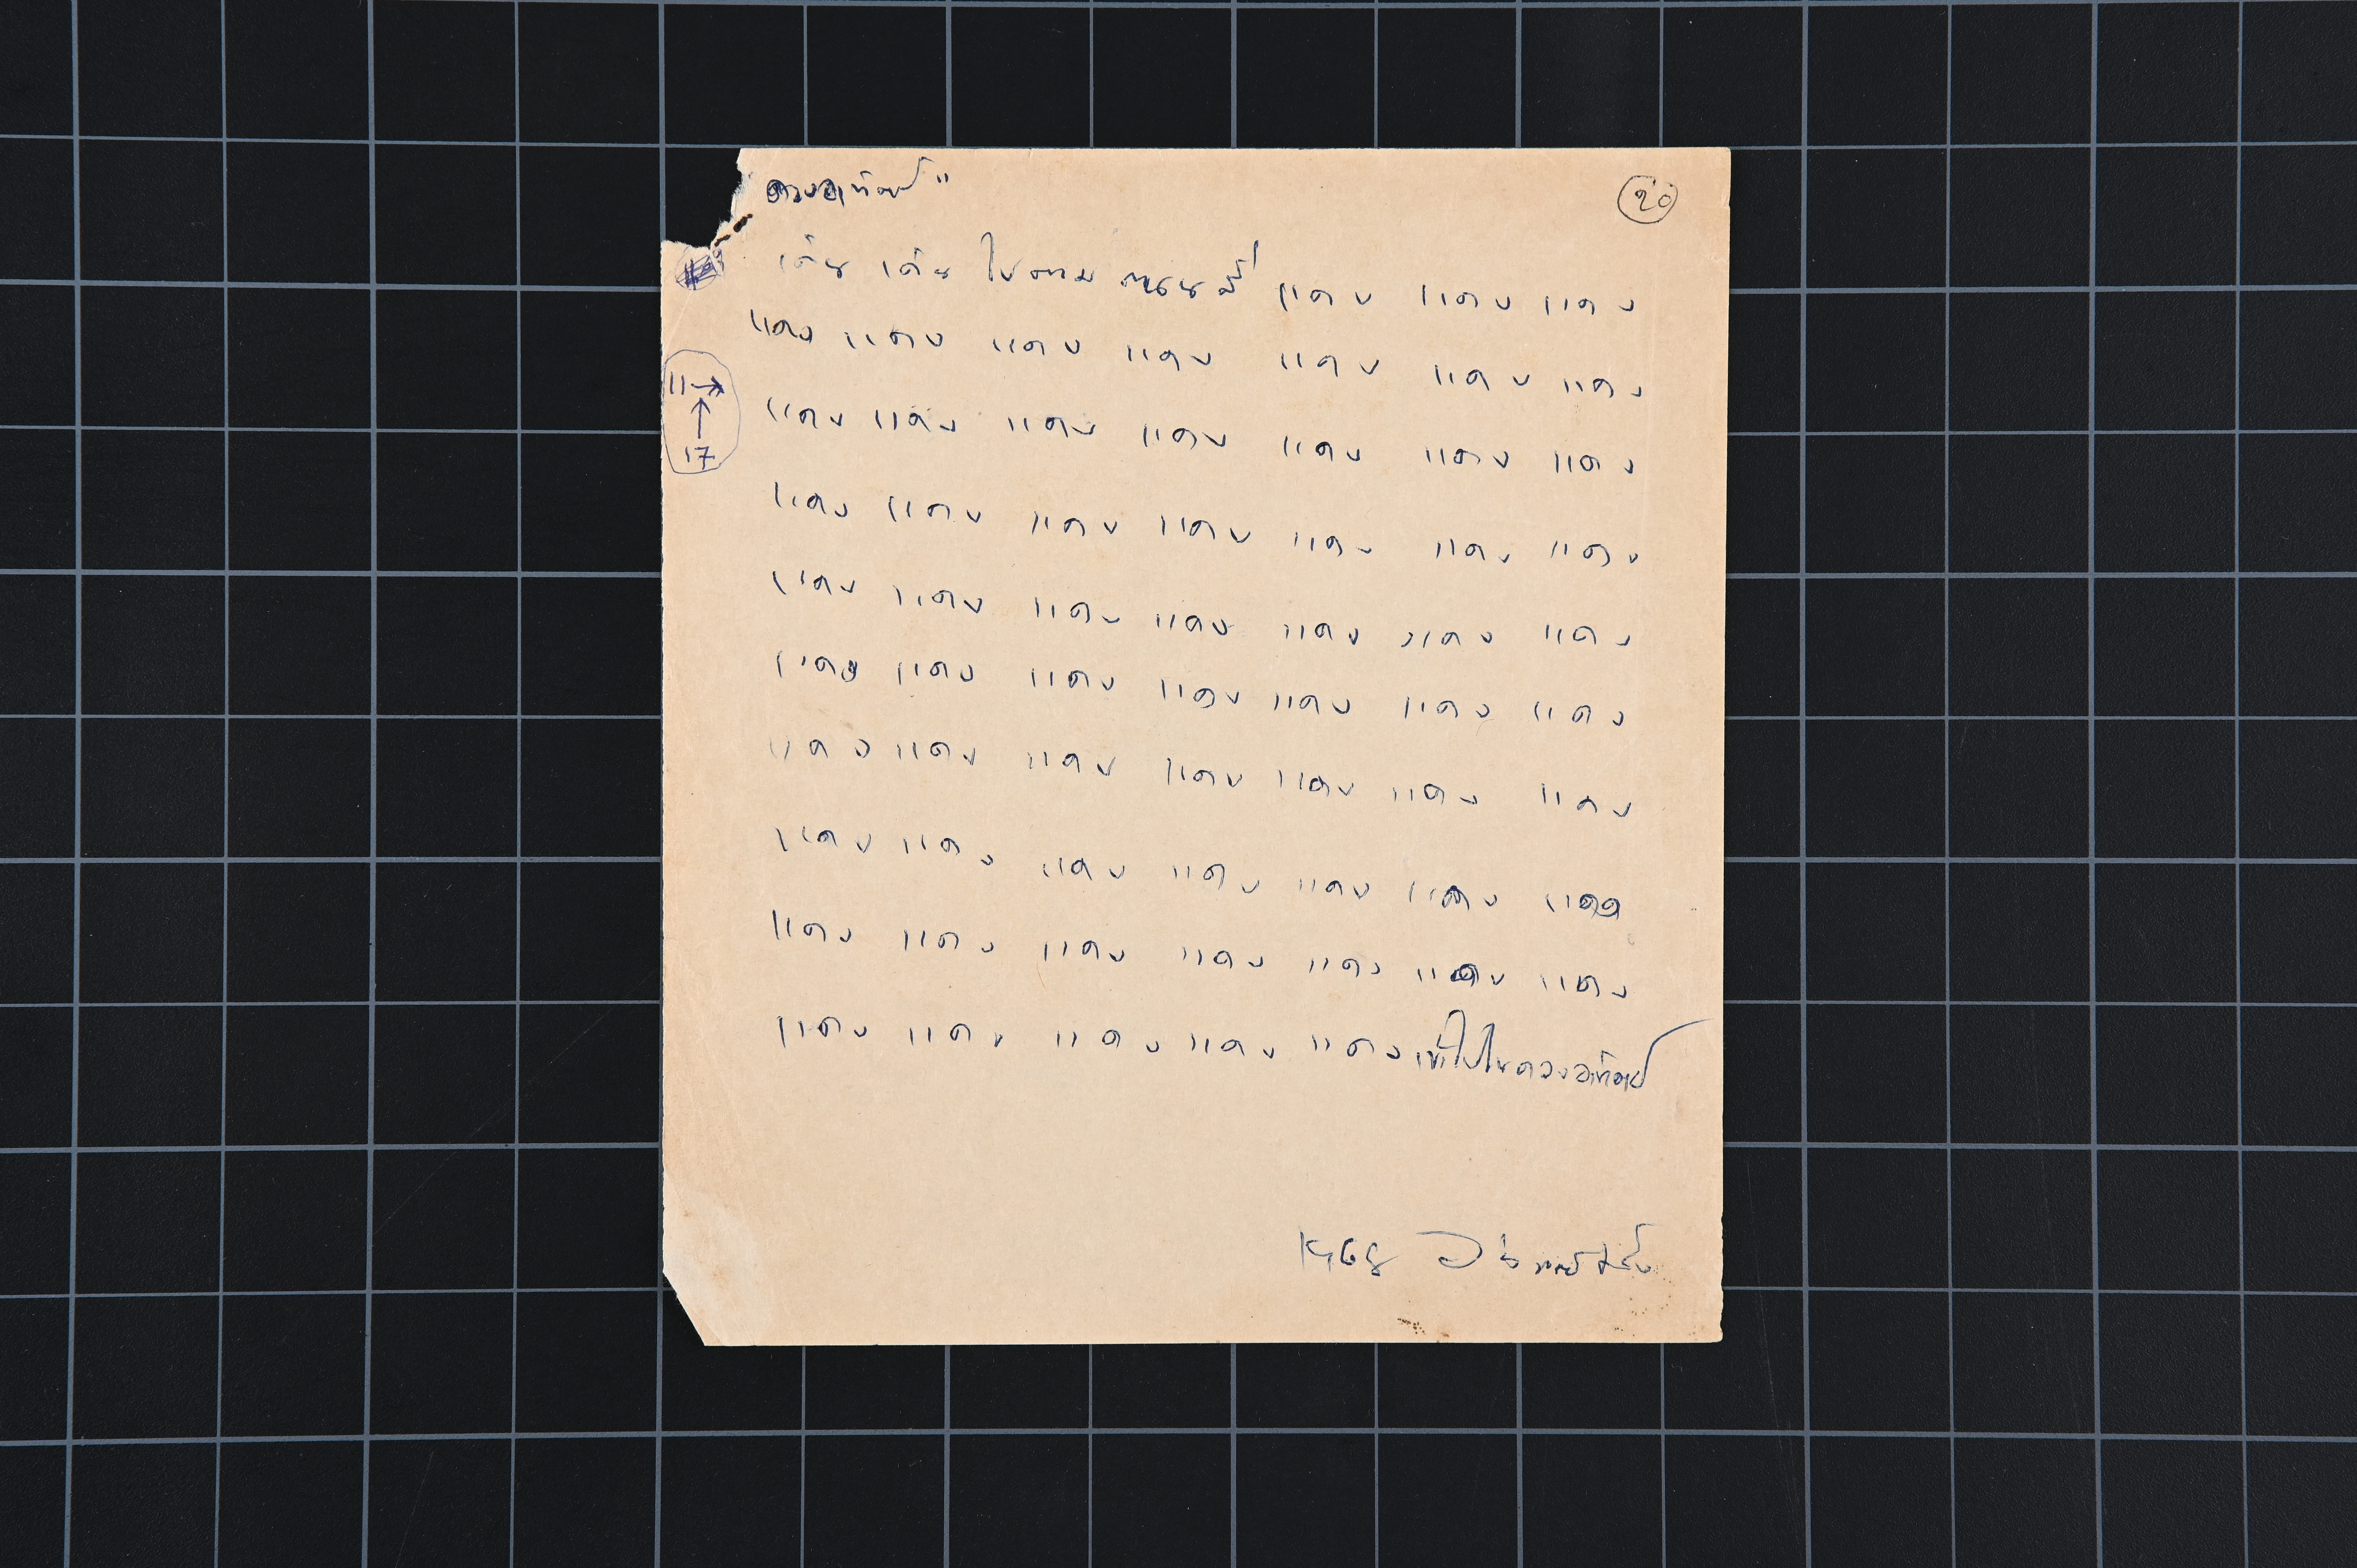 ดวงอาทิตย์"
20
เดิน เดิน ไปตาม ถนน แดง แดง แดง
แดง แดง แดง แดง แดง แดง แดง
11→
↑
17
แดง แดง แดง แดง แดง แดง แดง
แดง แดง แดง แดง แดง แดง แดง
แดง แดง แดง แดง แดง แดง แดง
แดง แดง แดง แดง แดง แดง แดง
แดง แดง แดง แดง แดง แดง แดง
แดง แดง แดง แดง แดง แดง แดง
แดง แดง แดง แดง แดง แดง แดง
แดง แดง แดง แดง แดง เข้าไปในดวงอาทิตย์